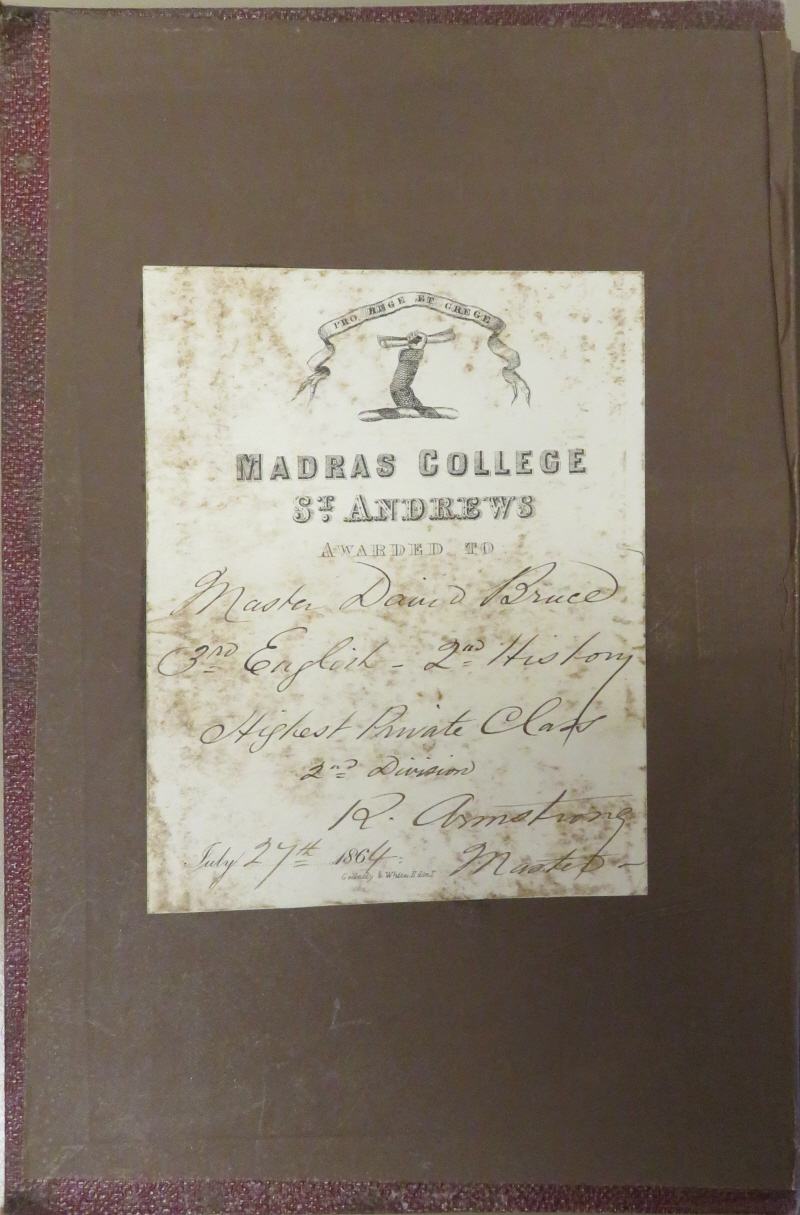 PRO REGE ET GREGE
MADRAS COLLEGE
ST. ANDREWS
AWARDED TO
Master David Bruce
3rd English - 2nd History
Highest Private Class
2nd Division
R. Armstrong
July 27th 1864. Master -